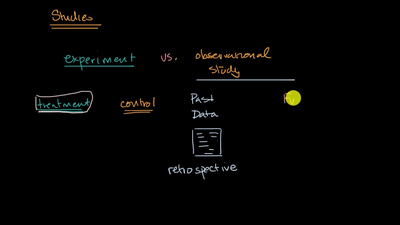 Studies
experiment vs. observational
study
treatment control Past
Data
retrospective